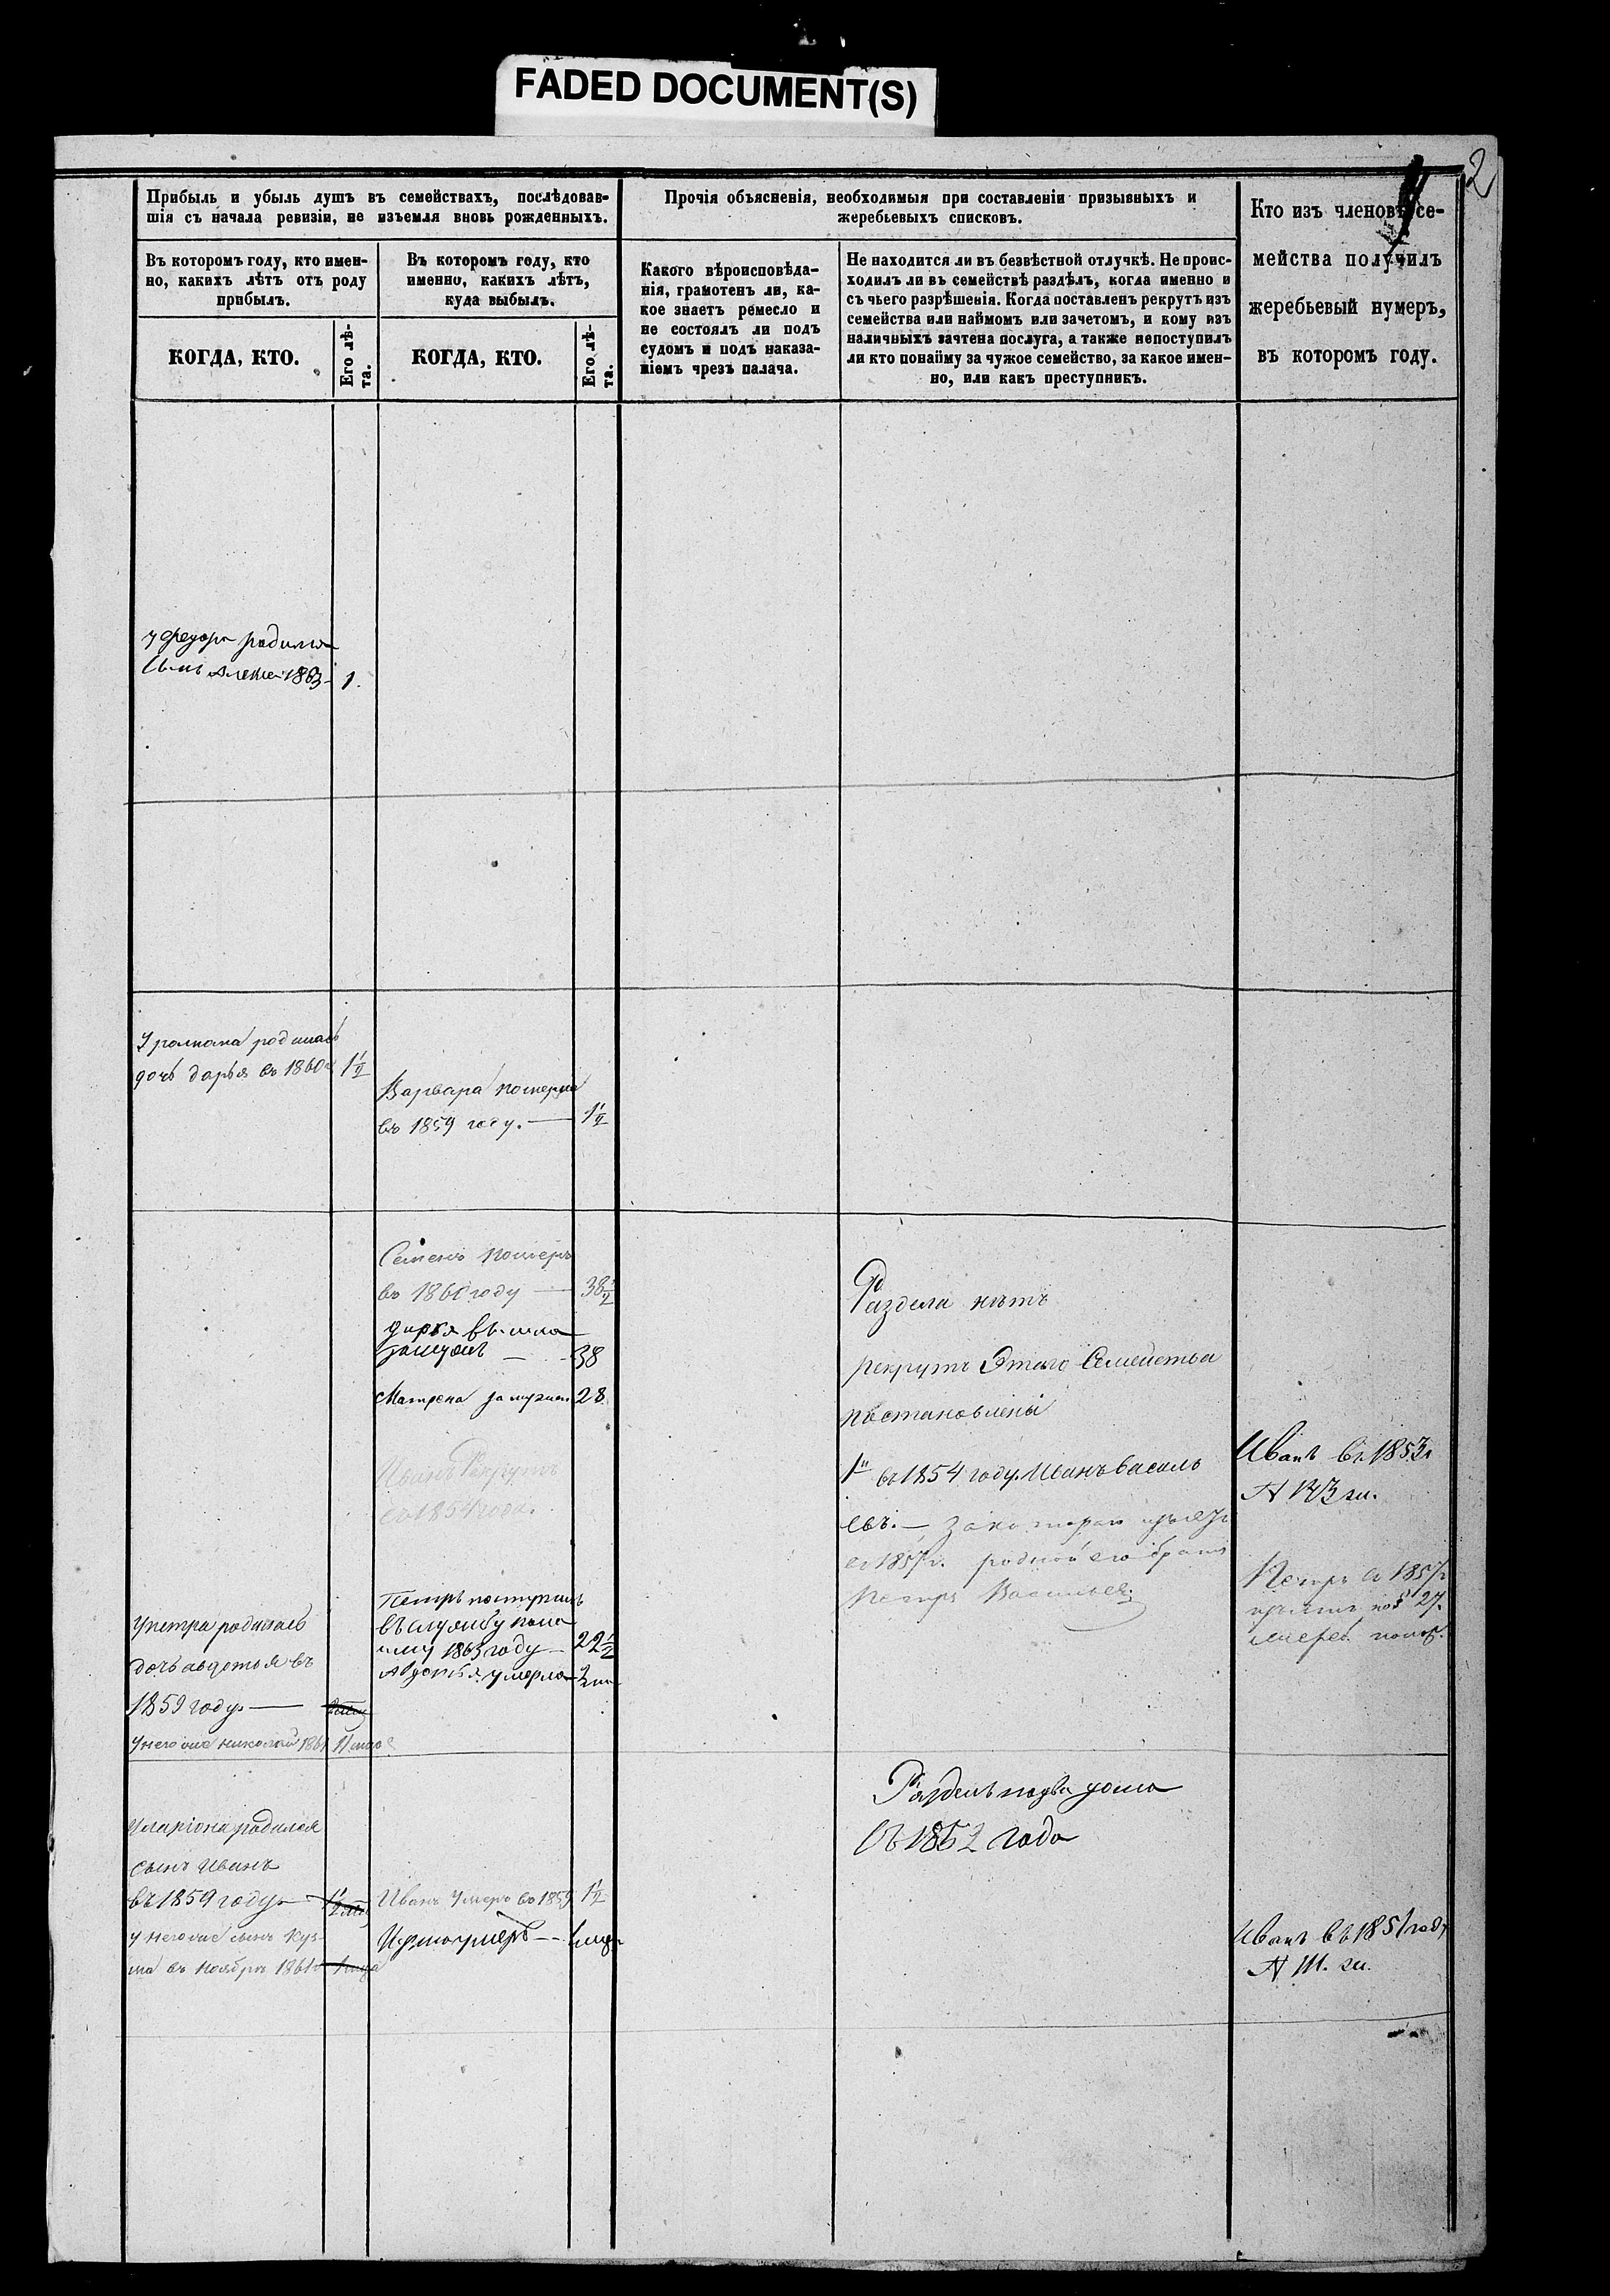 FADED DOCUMENT(S)
2
Прибыль и убыль душъ въ семействахъ, послѣдовав-
шія съ начала ревизіи, не изъемля вновь рожденныхъ.
Въ которомъ году, кто имен-
но, какихъ лѣтъ отъ роду
прибылъ.
КОГДА, КТО.
Его лѣ-
та.
Въ которомъ году, кто
именно, какихъ лѣтъ,
куда выбылъ.
КОГДА, КТО.
Его лѣ-
та.
Прочія объясненія, необходимыя при составленіи призывныхъ и
жеребьевыхъ списковъ.
Какого вѣроисповѣда-
нія, грамотенъ ли, ка-
кое знаетъ ремесло и
не состоялъ ли подъ
судомъ и подъ наказа-
ніемъ чрезъ палача.
Не находится ли въ безвѣстной отлучкѣ. Не проис-
ходилъ ли въ семействѣ раздѣлъ, когда именно и
съ чьего разрѣшенія. Когда поставленъ рекрутъ изъ
семейства или наймомъ или зачетомъ, и кому изъ
наличныхъ зачтена послуга, а также непоступилъ
ли кто понайму за чужое семейство, за какое имен-
но, или какъ преступникъ.
Кто изъ членовъ се-
мейства получилъ
жеребьевый нумеръ,
въ которомъ году.
у Федора родился
сынъ Алексей 1863 1.
У романа родилась
дочь дарья въ 1860 1½
Варвара померла
въ 1859 году. — 1½
Семенъ померъ
въ 1860 году — 38½
дарья вышла
замужъ — 38
Матрена замужъ 28
Иванъ Рекрутъ
въ 1854 года.
Петръ поступилъ
въ службу
1863 году — 22½
Авдотья умерла 2
Упетра родилась
дочь авдотья въ
1859 году —
у него же николай 1861 11
Раздела нѣтъ
рекрутъ Этаго Семейства
1й въ 1854 году Иванъ Василь
евъ. —
въ 1857 г. родной его братъ
Петръ Васильевъ.
Иванъ въ 1853 г
N 173
Петръ въ 1857 г
27.
Уларіона родился
сынъ Иванъ
въ 1859 году — 1½
у него же сынъ Куз-
ма въ Ноябрѣ 1861
Иванъ Умеръ въ 1859 1½
умеръ —
Разделъ на два дома
Съ 1862 года
Иванъ въ 1851 году
N 111.